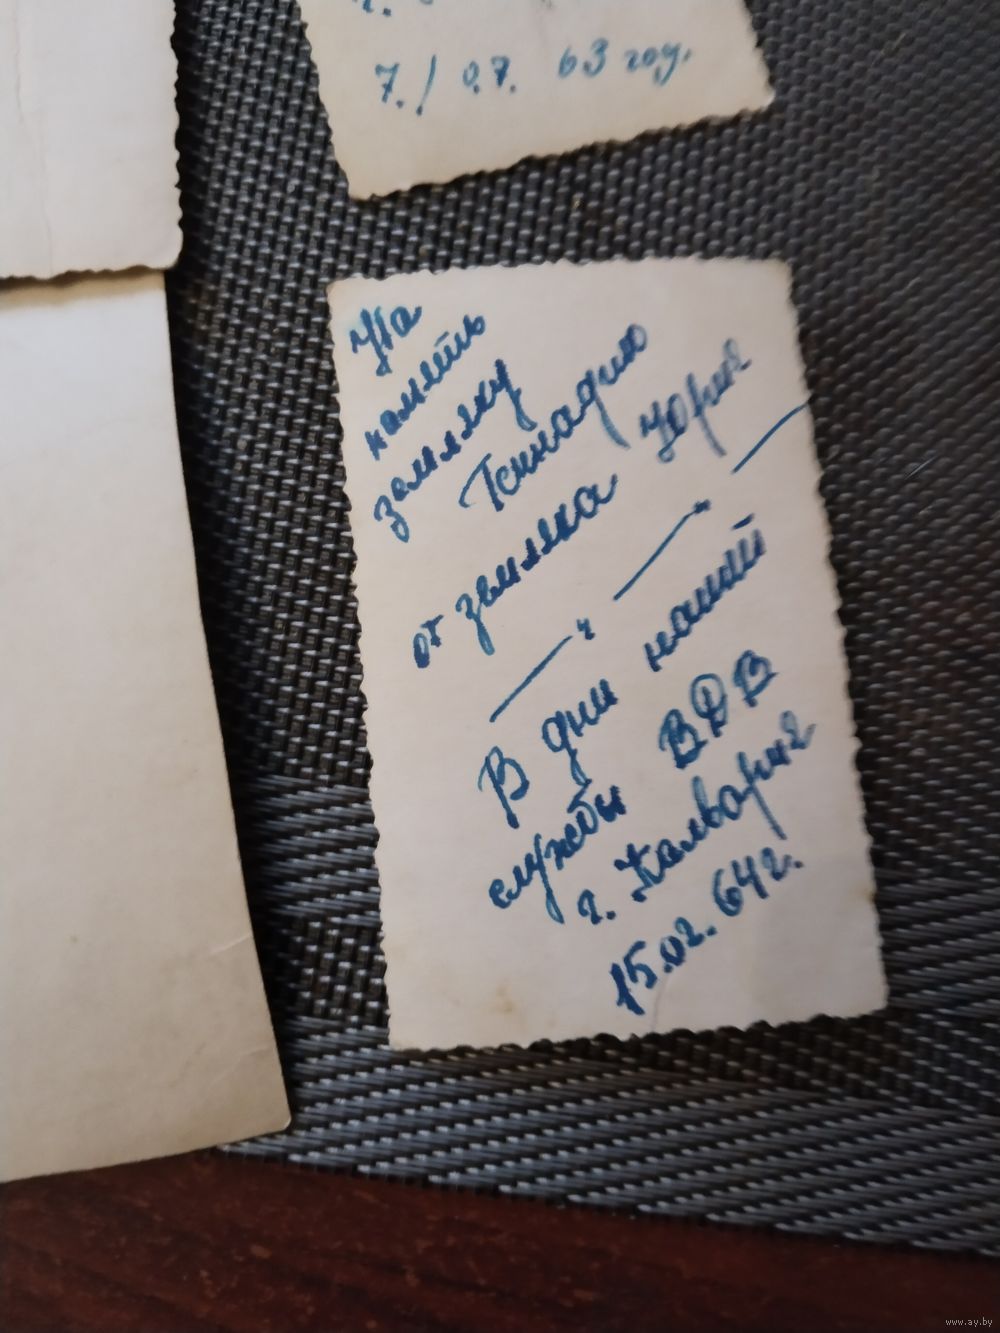 7./07. 63 год.
На
память
земляку
Геннадию
от земляка Юрия
— " — " —
В дни нашей
службы ВДВ
г. Калвария
15.02.64 г.
www.ay.by